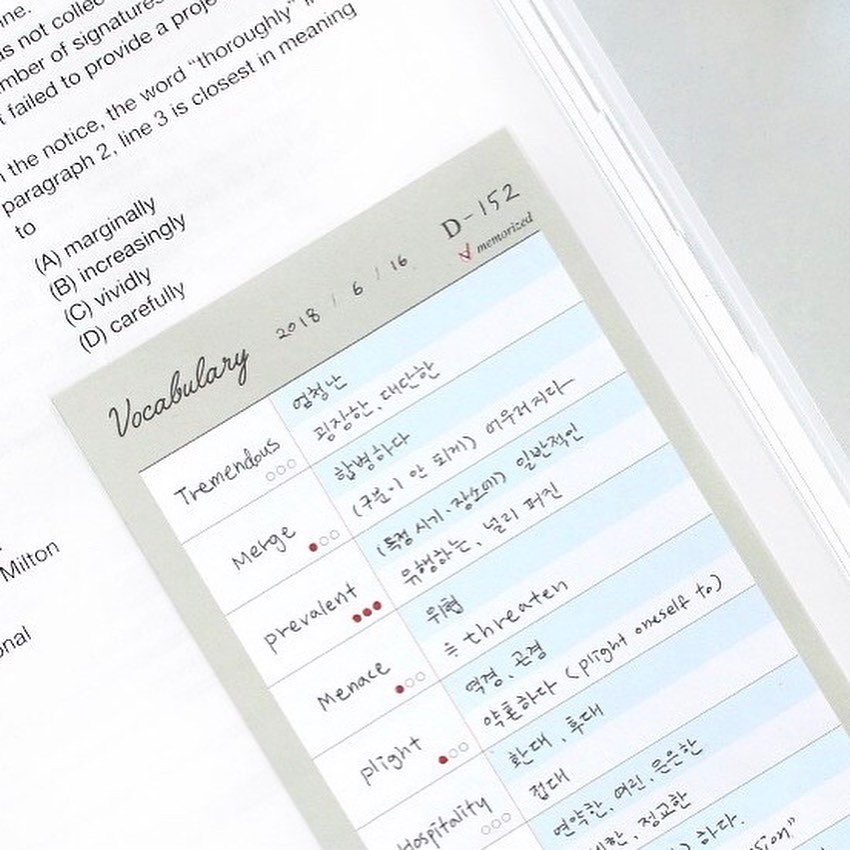 ne.
s not collec
mber of signatures
t failed to provide a proje
the notice, the word “thoroughly” i
paragraph 2, line 3 is closest in meaning
to
(A) marginally
(B) increasingly
(C) vividly
(D) carefully
Milton
onal
D-152
memorized
Vocabulary 2018 / 6 / 16
Tremendous
엄청난
굉장한, 대단한
Merge
합병하다
(구분이 안 되게) 어우러지다
prevalent
(특정 시기·장소에) 일반적인
유행하는, 널리 퍼진
Menace
위협
≒ threaten
plight
역경, 곤경
약혼하다 (plight oneself to)
Hospitality
환대, 후대
접대
연약한, 여린, 은은한
세한, 정교한
) 하다.
sion"